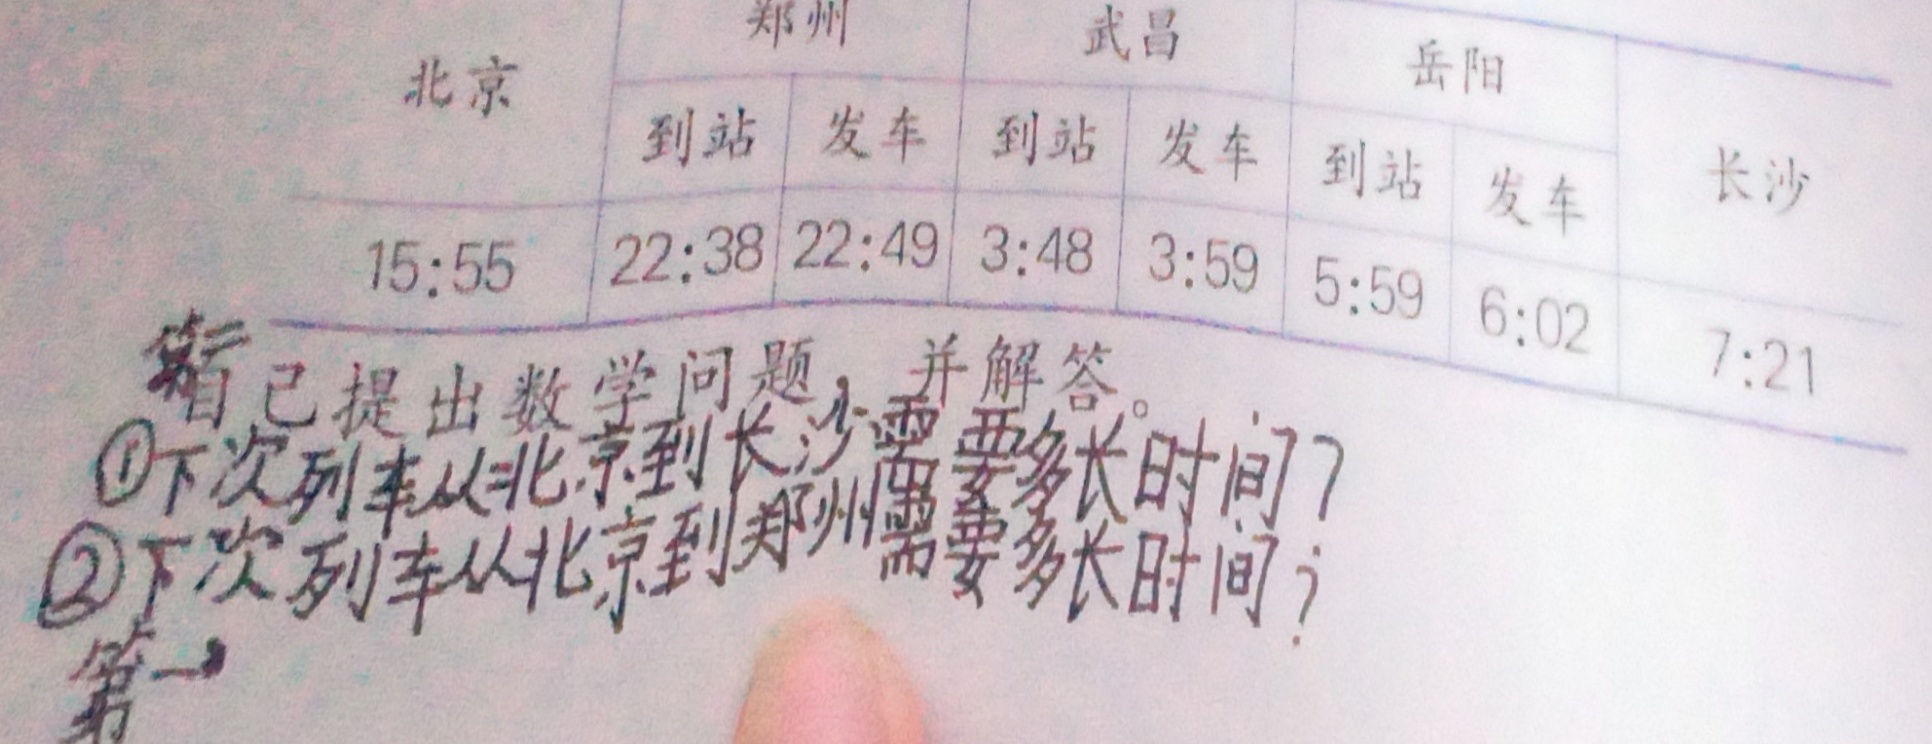 北京 郑州 武昌 岳阳 长沙
到站 发车 到站 发车 到站 发车
15:55 22:38 22:49 3:48 3:59 5:59 6:02 7:21
自己提出数学问题，并解答。
①下次列车从北京到长沙需要多长时间?
②下次列车从北京到郑州需要多长时间?
第一